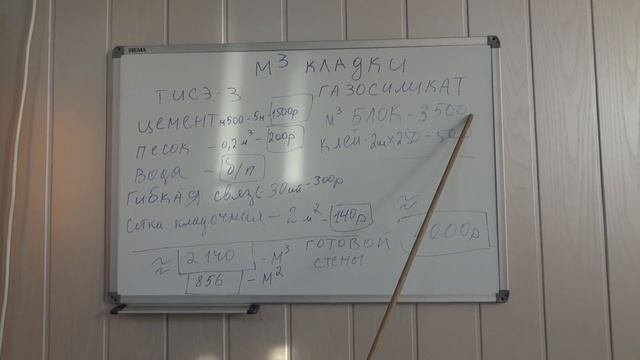 REMA
М³ КЛАДКИ
ТИСЭ-3
ЦЕМЕНТ М500-5м-1500р
ПЕСОК - 0,2м³ - 200р
ВОДА - б/п
ГИБКАЯ СВЯЗЬ-30шт-300р
Сетка кладочная - 2м²-140р
≈ 2140 - М³ ГОТОВОЙ
СТЕНЫ
856 - М²
ГАЗОСИЛИКАТ
М³ БЛОК-3500
КЛЕЙ-2шт×250-500
≈